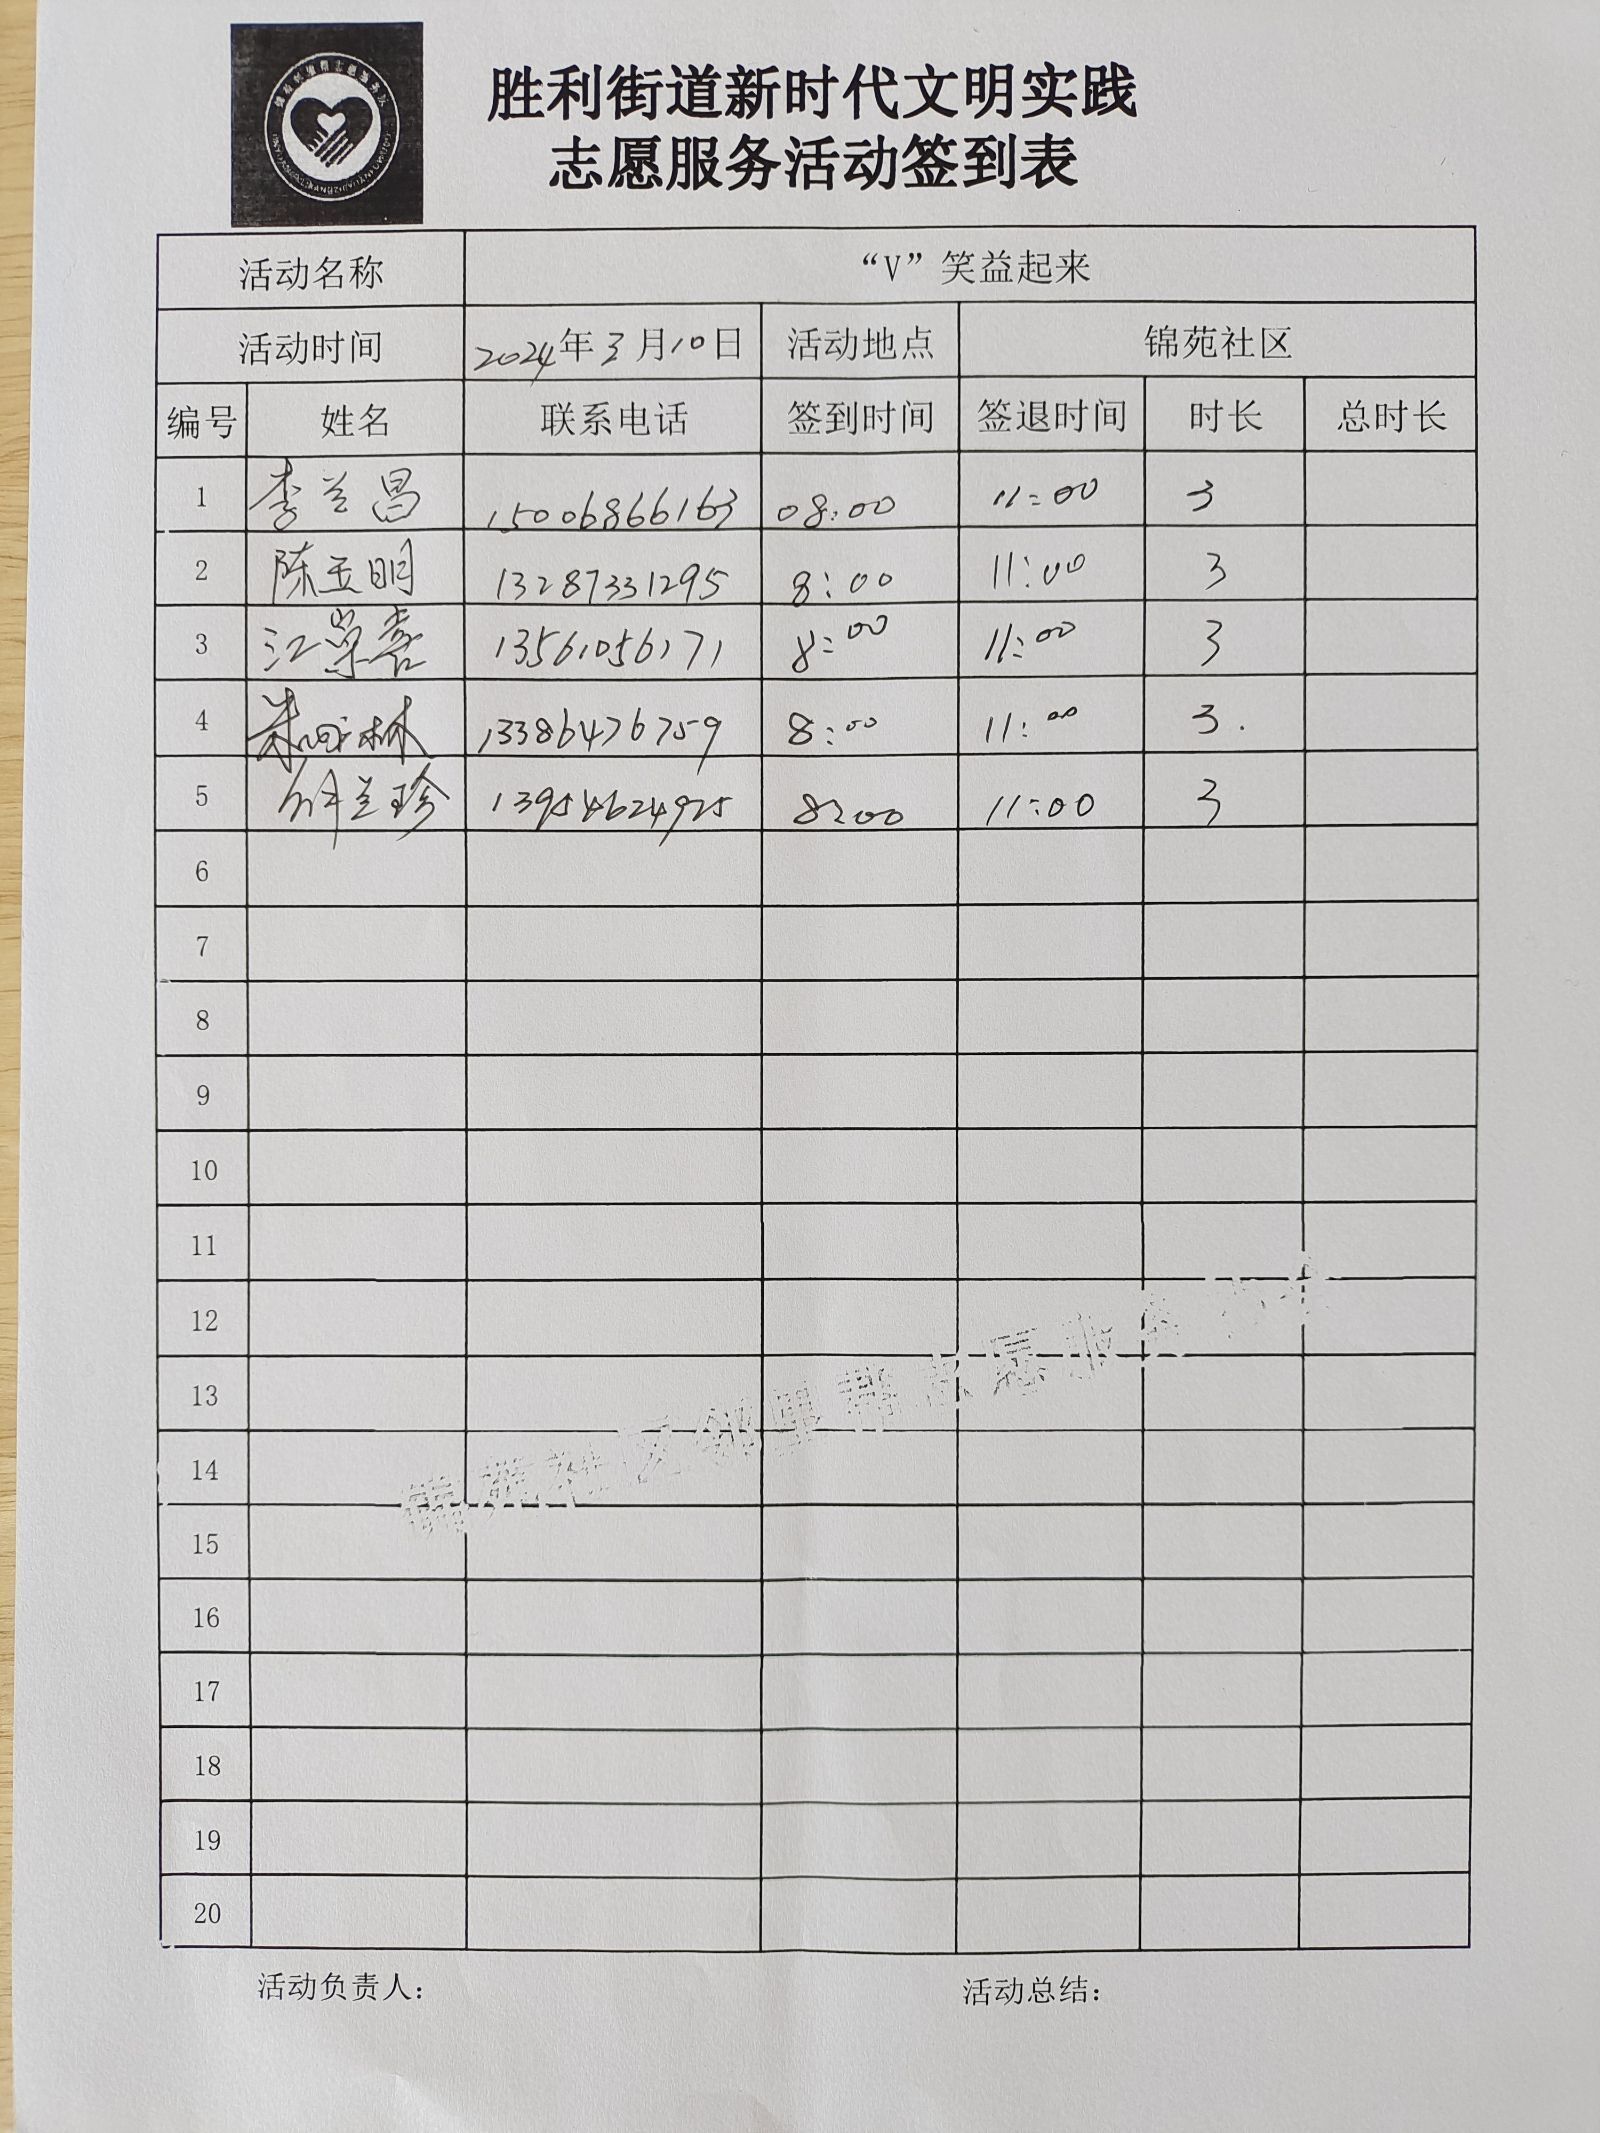 胜利街道新时代文明实践
志愿服务活动签到表
活动名称 “V”笑益起来
活动时间 2024年3月10日 活动地点 锦苑社区
编号 姓名 联系电话 签到时间 签退时间 时长 总时长
1 李兰昌 15006866163 08:00 11:00 3
2 陈玉明 13287331295 8:00 11:00 3
3 江崇喜 13561056171 8:00 11:00 3
4 林 13386476759 8:00 11:00 3.
5 兰珍 13954624925 8:00 11:00 3
6
7
8
9
10
11
12
13
14
15
16
17
18
19
20
锦苑社区邻里帮志愿服务
活动负责人： 活动总结：